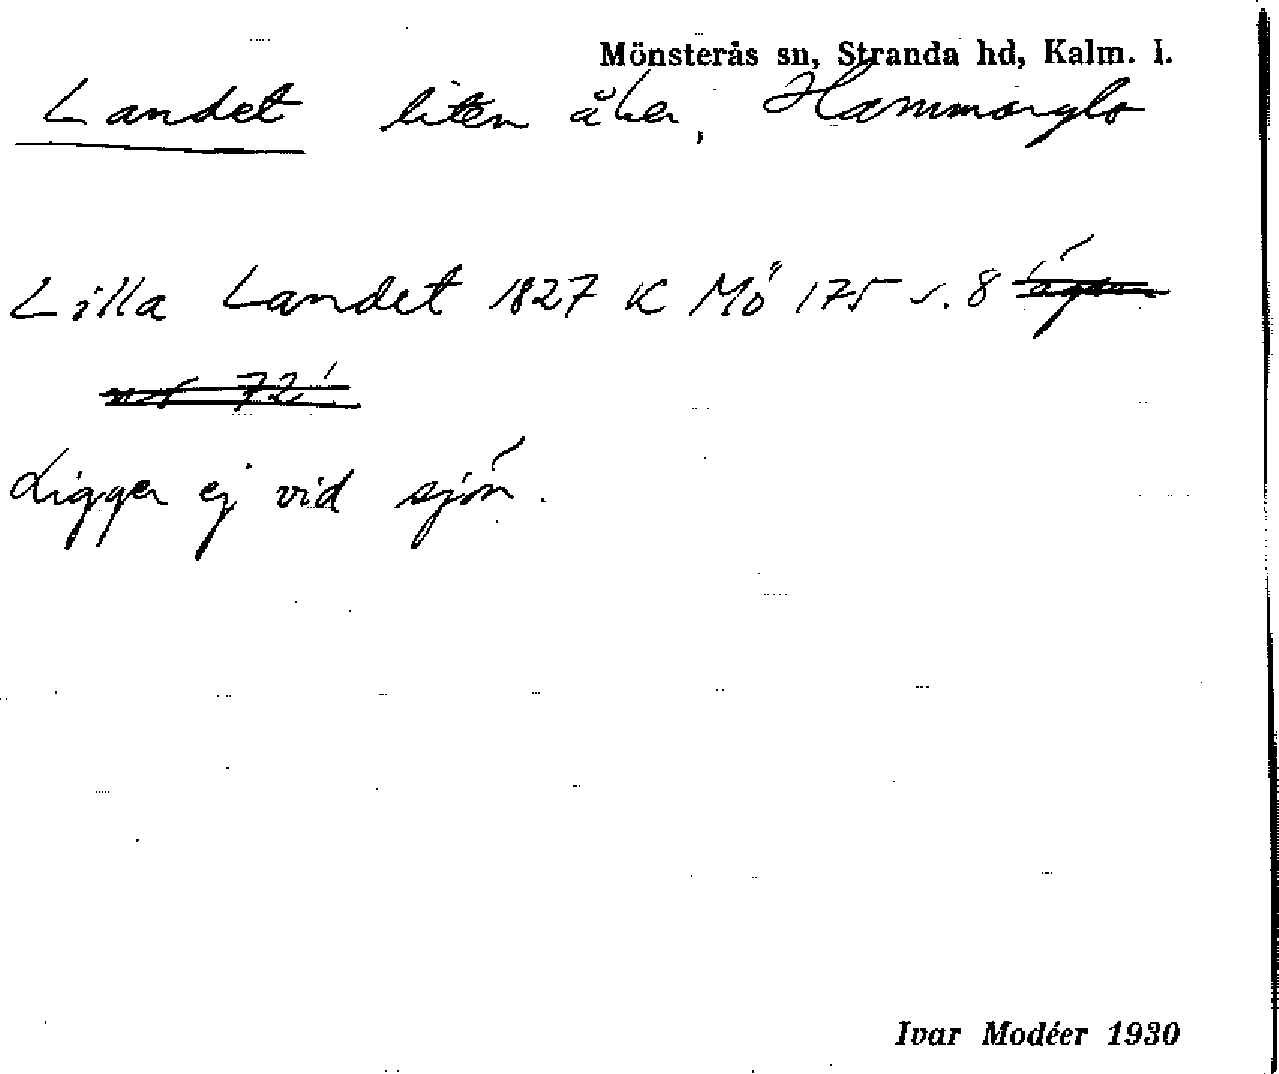 Mönsterås sn, Stranda hd, Kalm. l.
Landet liten åker, Hammarglo
Lilla Landet 1827 K Mö 175 s. 8 ägan
nr 72
Ligger ej vid sjön.
Ivar Modéer 1930